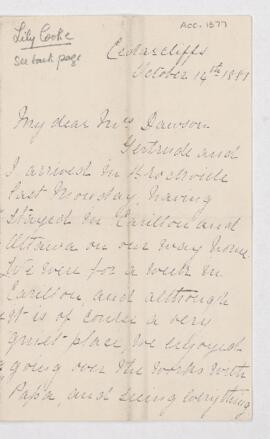 Lily Cooke
See back page
Acc. 1577
Cedarcliffs
October 14th 1881
My dear Mrs Dawson
Gertrude and
I arrived in Brockville
last Monday, having
stayed in Carillon and
Ottawa on our way home.
We were for a week in
Carillon, and although
it is of course a very
quiet place, we enjoyed
going over the works with
Papa, and seeing everything